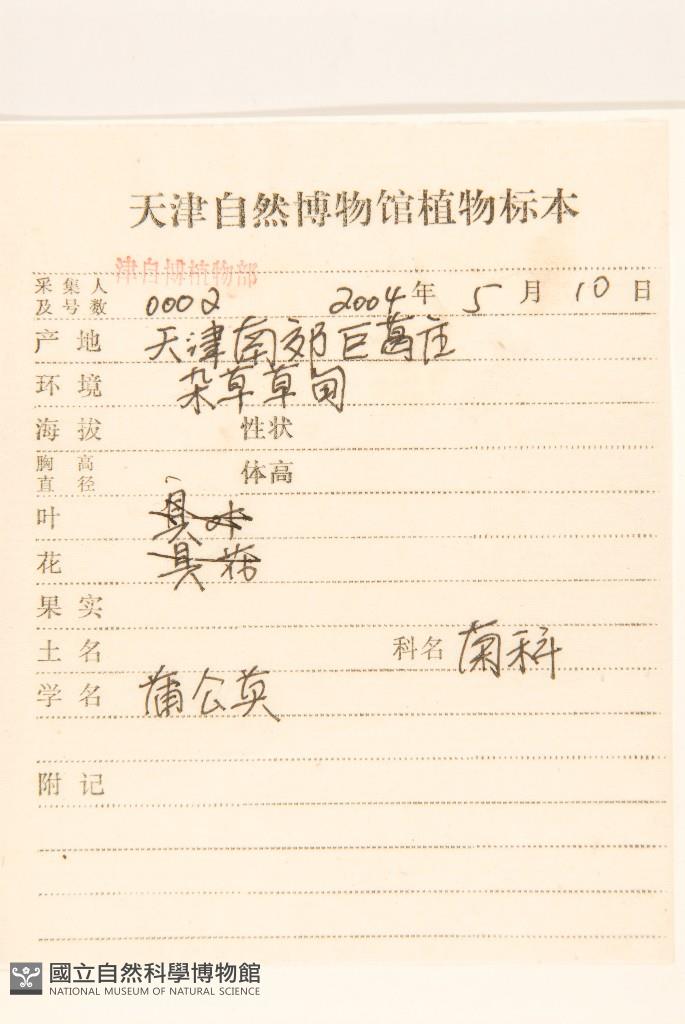 天津自然博物馆植物标本
津自博植物部
采集人及号数 0002 2004年5月10日
产地 天津南郊巨葛庄
环境 杂草草甸
海拔 性状
胸高直径 体高
叶 具叶
花 具花
果实
土名 科名 菊科
学名 蒲公英
附记
國立自然科學博物館
NATIONAL MUSEUM OF NATURAL SCIENCE